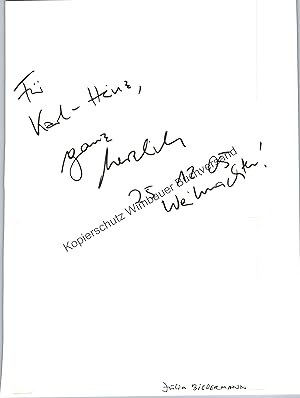 Für
Karl-Heinz,
ganz
herzlich
25.12.05
Weihnachten!
Kopierschutz Wimbauer Buchversand
Julia BIEDERMANN